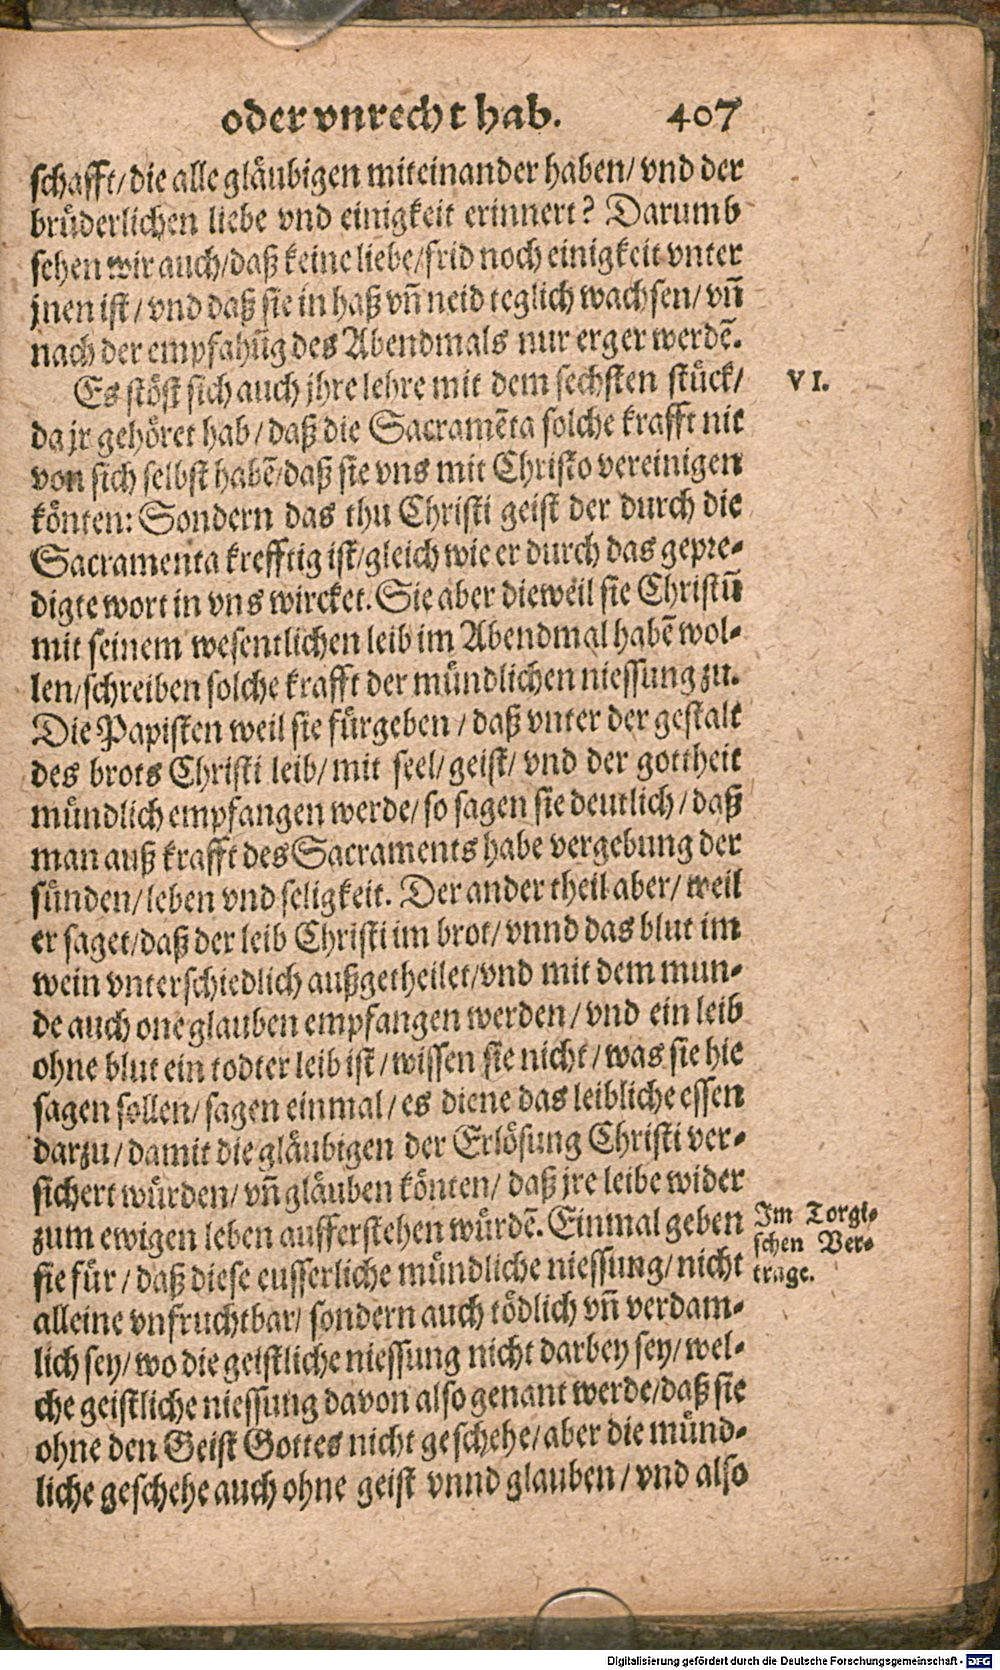 oder vnrecht hab. 407
schafft/ die alle gläubigen miteinander haben/ vnd der
brüderlichen liebe vnd einigkeit erinnert? Darumb
sehen wir auch/ daß keine liebe/ frid noch einigkeit vnter
jnen ist/ vnd daß sie in haß vñ neid teglich wachsen/ vñ
nach der empfahũg des Abendmals nur erger werdẽ.
Es stöst sich auch jhre lehre mit dem sechsten stück/
VI.
da jr gehöret hab/ daß die Sacramẽta solche krafft nit
von sich selbst habẽ/ daß sie vns mit Christo vereinigen
könten: Sondern das thu Christi geist der durch die
Sacramenta krefftig ist/ gleich wie er durch das gepre-
digte wort in vns wircket. Sie aber dieweil sie Christũ
mit seinem wesentlichen leib im Abendmal habẽ wol-
len/ schreiben solche krafft der mündlichen niessung zu.
Die Papisten weil sie fürgeben/ daß vnter der gestalt
des brots Christi leib/ mit seel/ geist/ vnd der gottheit
mündlich empfangen werde/ so sagen sie deutlich/ daß
man auß krafft des Sacraments habe vergebung der
sünden/ leben vnd seligkeit. Der ander theil aber/ weil
er saget/ daß der leib Christi im brot/ vnnd das blut im
wein vnterschiedlich außgetheilet/ vnd mit dem mun-
de auch one glauben empfangen werden/ vnd ein leib
ohne blut ein todter leib ist/ wissen sie nicht/ was sie hie
sagen sollen/ sagen einmal/ es diene das leibliche essen
darzu/ damit die gläubigen der Erlösung Christi ver-
sichert würden/ vñ gläuben könten/ daß jre leibe wider
zum ewigen leben aufferstehen würdẽ. Einmal geben
Im Torgi-
schen Ver-
trage.
sie für/ daß diese eusserliche mündliche niessung/ nicht
alleine vnfruchtbar/ sondern auch tödlich vñ verdam-
lich sey/ wo die geistliche niessung nicht darbey sey/ wel-
che geistliche niessung davon also genant werde/ daß sie
ohne den Geist Gottes nicht geschehe/ aber die münd-
liche geschehe auch ohne geist vnnd glauben/ vnd also
Digitalisierung gefördert durch die Deutsche Forschungsgemeinschaft - DFG